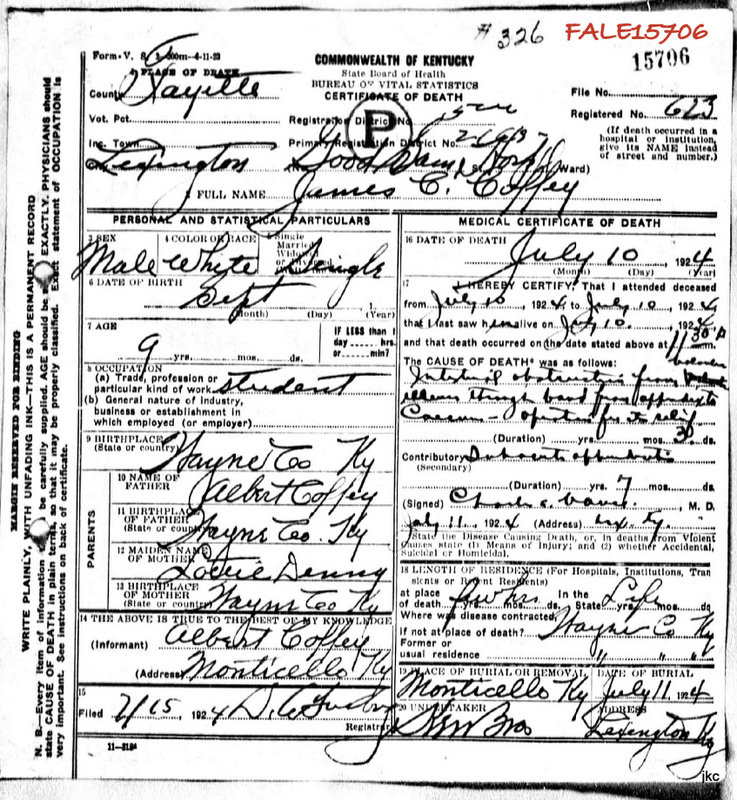 # 326 FALE15706
15706
Form-V. S. 1-300m-4-11-23
1 PLACE OF DEATH
COMMONWEALTH OF KENTUCKY
State Board of Health
BUREAU OF VITAL STATISTICS
CERTIFICATE OF DEATH
County Fayette
File No.
Vot. Pct.
Registration District No.
Registered No. 623
P
(If death occurred in a hospital or institution, give its NAME instead of street and number.)
Inc. Town
Primary Registration District No.
Lexington
(No. Good Sam. Hosp Ward)
2 FULL NAME James C. Coffey
PERSONAL AND STATISTICAL PARTICULARS
3 SEX Male
4 COLOR OR RACE White
5 Single Married Widowed or Divorced Single
6 DATE OF BIRTH Sept
(Month) (Day) , 1 (Year)
7 AGE
9 yrs. mos. ds.
IF LESS than 1 day hrs. or min?
8 OCCUPATION
(a) Trade, profession or particular kind of work student
(b) General nature of industry, business or establishment in which employed (or employer)
9 BIRTHPLACE (State or country) Wayne Co Ky
PARENTS
10 NAME OF FATHER Albert Coffey
11 BIRTHPLACE OF FATHER (State or country) Wayne Co. Ky
12 MAIDEN NAME OF MOTHER Lottie Denny
13 BIRTHPLACE OF MOTHER (State or country) Wayne Co Ky
14 THE ABOVE IS TRUE TO THE BEST OF MY KNOWLEDGE
(Informant) Albert Coffey
(Address) Monticello Ky
15
Filed 7/15, 1924
Registrar
11-3184
MEDICAL CERTIFICATE OF DEATH
16 DATE OF DEATH July 10, 1924
(Month) (Day) (Year)
17 I HEREBY CERTIFY, That I attended deceased
from July 10, 1924 to July 10, 1924,
that I last saw him alive on July 10, 1924
and that death occurred on the date stated above at 11 30 P m.
The CAUSE OF DEATH* was as follows:
Intestinal obstruction from
illeum through band from appendix to
Caecum - operation for its relief
(Duration) yrs. mos. 3 ds.
Contributory appendicitis
(Secondary)
(Duration) yrs. 7 mos. ds.
(Signed) Charles C., M. D.
July 11, 1924 (Address) Lex. Ky.
*State the Disease Causing Death, or, in deaths from Violent Causes state (1) Means of Injury; and (2) whether Accidental, Suicidal or Homicidal.
18 LENGTH OF RESIDENCE (For Hospitals, Institutions, Transients or Recent Residents)
at place of death few hrs yrs. mos. ds. In the State Life yrs. mos. ds.
Where was disease contracted, if not at place of death? Wayne Co Ky
Former or usual residence " " "
19 PLACE OF BURIAL OR REMOVAL Monticello Ky
DATE OF BURIAL July 11 1924
20 UNDERTAKER Bros
ADDRESS Lexington Ky
jkc
MARGIN RESERVED FOR BINDING
WRITE PLAINLY, WITH UNFADING INK—THIS IS A PERMANENT RECORD
N. B.—Every item of information be carefully supplied. AGE should be EXACTLY. PHYSICIANS should
state CAUSE OF DEATH in plain terms, so that it may be properly classified. Exact statement of OCCUPATION is
very important. See instructions on back of certificate.